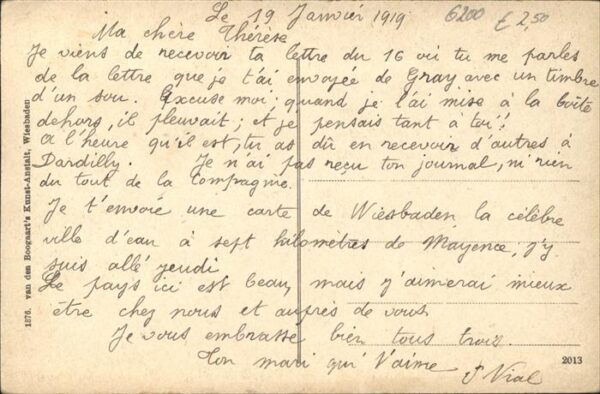 Le 19 Janvier 1919
6200
£ 2,50
Ma chère Thérèse
Je viens de recevoir ta lettre du 16 où tu me parles
de la lettre que je t'ai envoyée de Gray avec un timbre
d'un sou. Excuse moi, quand je l'ai mise à la boîte
dehors, il pleuvait ; et je pensais tant à toi !
A l'heure qu'il est, tu as dû en recevoir d'autres à
Dardilly. Je n'ai pas reçu ton journal, ni rien
du tout de la Compagnie.
Je t'envoie une carte de Wiesbaden la célèbre
ville d'eau à sept kilomètres de Mayence, j'y
suis allé jeudi
Le pays ici est beau, mais j'aimerai mieux
être chez nous et auprès de vous.
Je vous embrasse bien tous trois.
Ton mari qui t'aime
Vial
1376. van den Boogaart's Kunst-Anstalt, Wiesbaden
2013